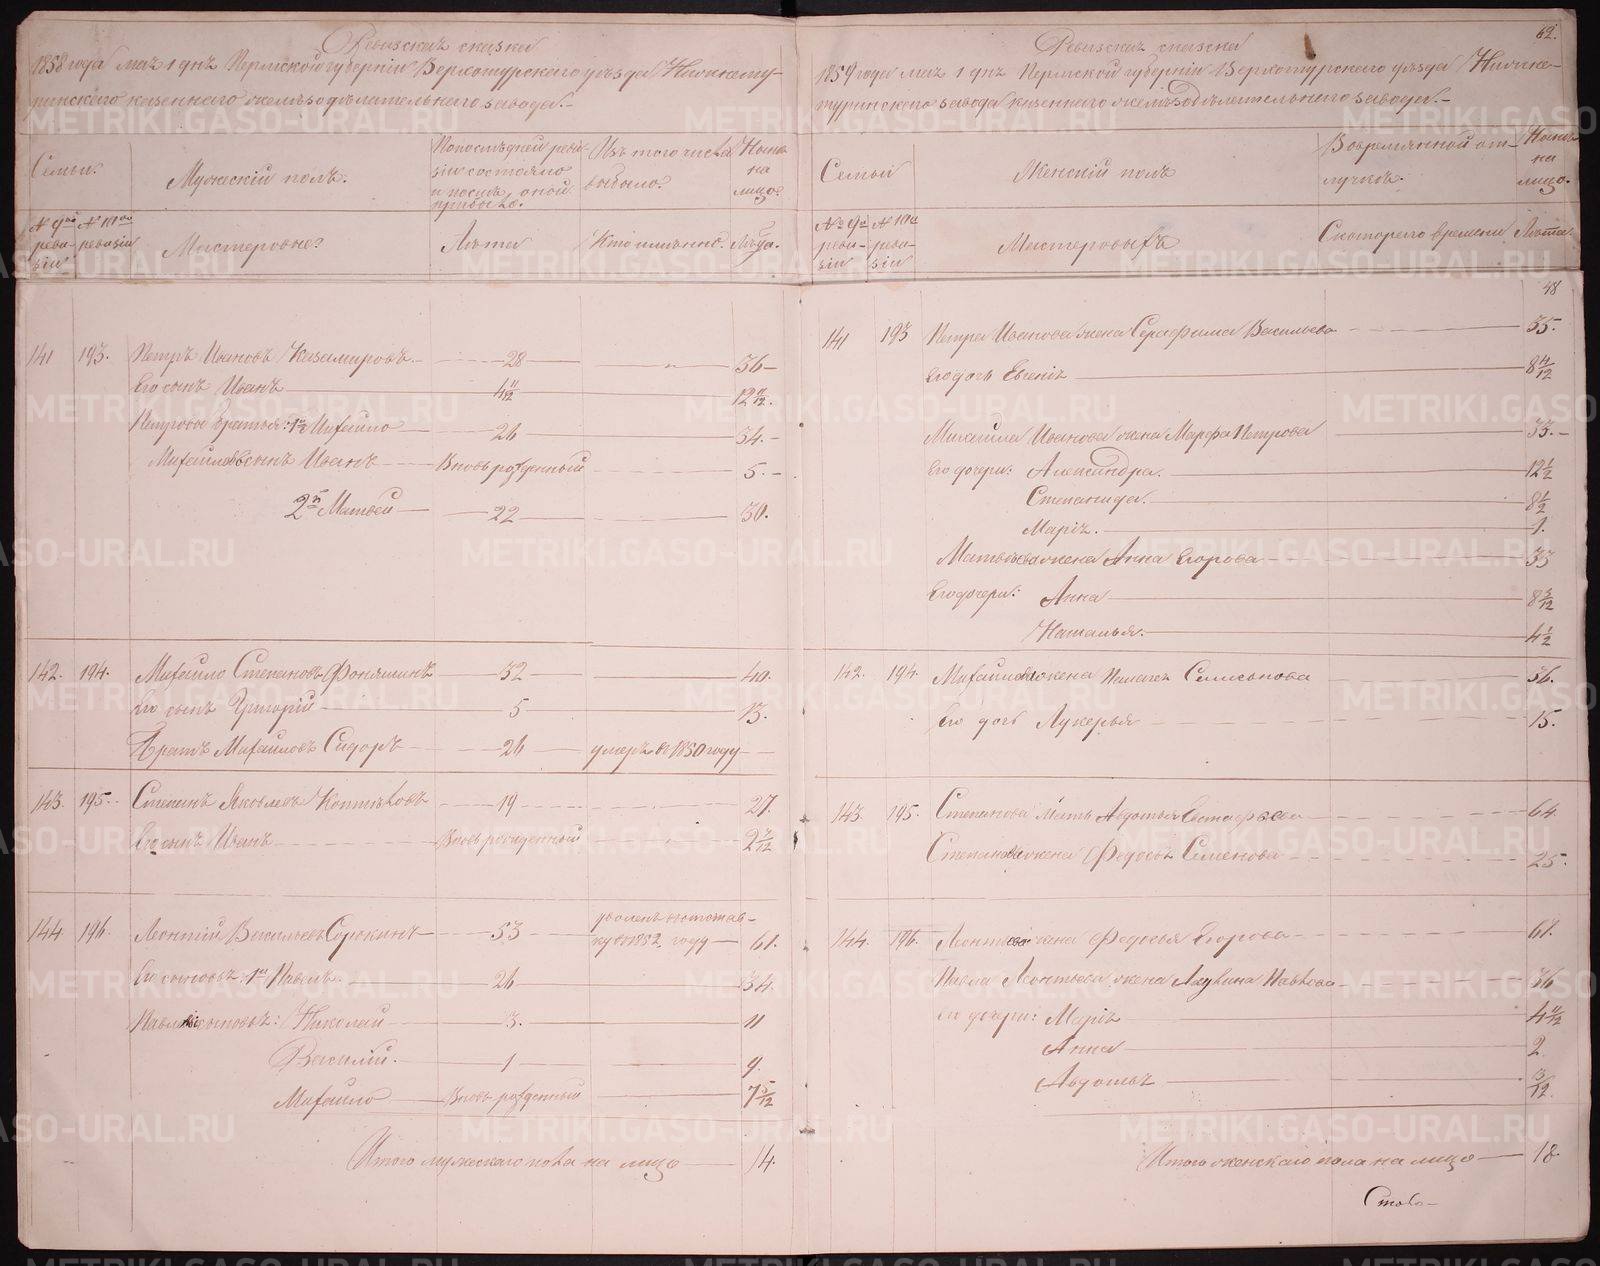 Ревизская сказка
1858 года мая 1 дня Пермской губерніи Верхотурскаго уѣзда Нижнету-
ринскаго казеннаго желѣзодѣлательнаго завода.-
Семьи.
Мужескій полъ.
По послѣдней реви-
зіи состояло
и послѣ оной
прибыло.
Изъ того числа
выбыло.
Нынѣ
на
лицо.
№ 9ой
реви-
зіи
№ 10ой
ревизіи
Мастеровые
Лѣта
Кто именно.
Лѣта.
141 193. Петръ Ивановъ Казамировъ 28 " 36
Его сынъ Иванъ 4 11/12 12 11/12.
Петровы братья: 1й Михайло 26 34.
Михайловъ сынъ Иванъ Вновь рожденный 5.
2й Матвей 22 30.
142. 194. Михайло Степановъ Фонямкинъ 32 40.
Его сынъ Григорій 5 13.
Братъ Михайловъ Сидоръ 26 умеръ въ 1850 году
143. 195. Степанъ Яковлевъ Коптяковъ 19 27.
Его сынъ Иванъ Вновь рожденный 2 7/12
144 196. Леонтій Васильевъ Сорокинъ 53 уволенъ въ отстав-
ку въ 1852 году 61.
Его сыновья: 1й Павелъ. 26 34.
Павловы сыновья: Николай 3. 11
Василій. 1 9.
Михайло Вновь рожденный 7 5/12
Итого мужескаго пола на лицо 14.
62.
Ревизская сказка
1859 года мая 1 дня Пермской губерніи Верхотурскаго уѣзда Нижне-
туринскаго завода казеннаго желѣзодѣлательнаго завода.-
Семьи
Женскій полъ
Во временной от-
лучкѣ.
Нынѣ
на
лицо.
№ 9й
реви-
зіи
№ 10й
реви-
зіи
Мастеровыхъ
Съ котораго времени
Лѣта.
48
141 193 Петра Иванова жена Серафима Васильева 35.
Его дочь Евгенія 8 4/12
Михаила Иванова жена Марфа Петрова 33.
Его дочери: Александра. 12 1/2
Степанида. 8 1/2
Марія. 1.
Матвѣева жена Анна Егорова 33
Его дочери: Анна 8 3/12
Наталья. 4 1/2
142. 194. Михайлова жена Пелагея Савельева 36.
Его дочь Лукерья 15.
143. 195. Степанова мать Авдотья Евстафьева 64.
Степанова жена Федосья Семенова 25.
144. 196. Леонтьева жена Федосья Егорова 61.
Павла Леонтьева жена Акулина Павлова 36
Его дочери: Марія 4 11/12
Анна 2.
Авдотья 3/12.
Итого женскаго пола на лицо 18.